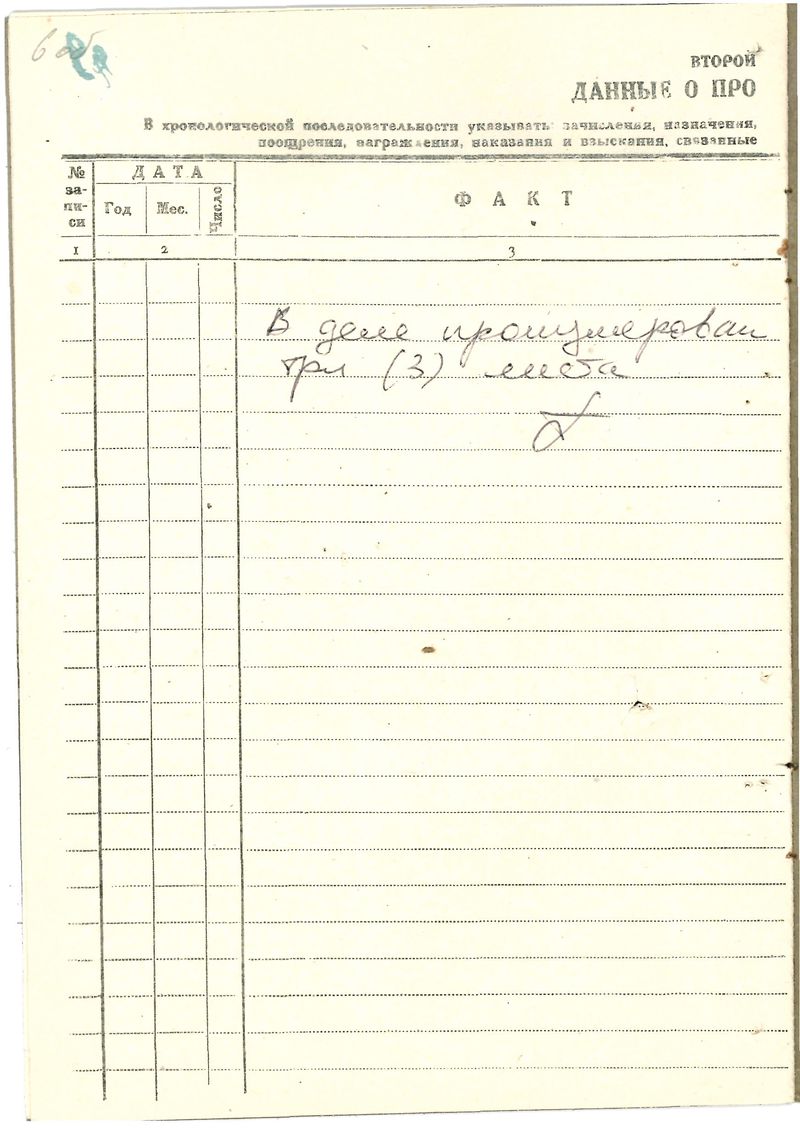 6 об
ВТОРОЙ
ДАННЫЕ О ПРО
В хронологической последовательности указывать зачисления, назначения,
поощрения, награждения, наказания и взыскания, связанные
№ за- пи- си
ДАТА
Год
Мес.
Число
ФАКТ
1
2
3
В деле пронумерован
три (3) листа